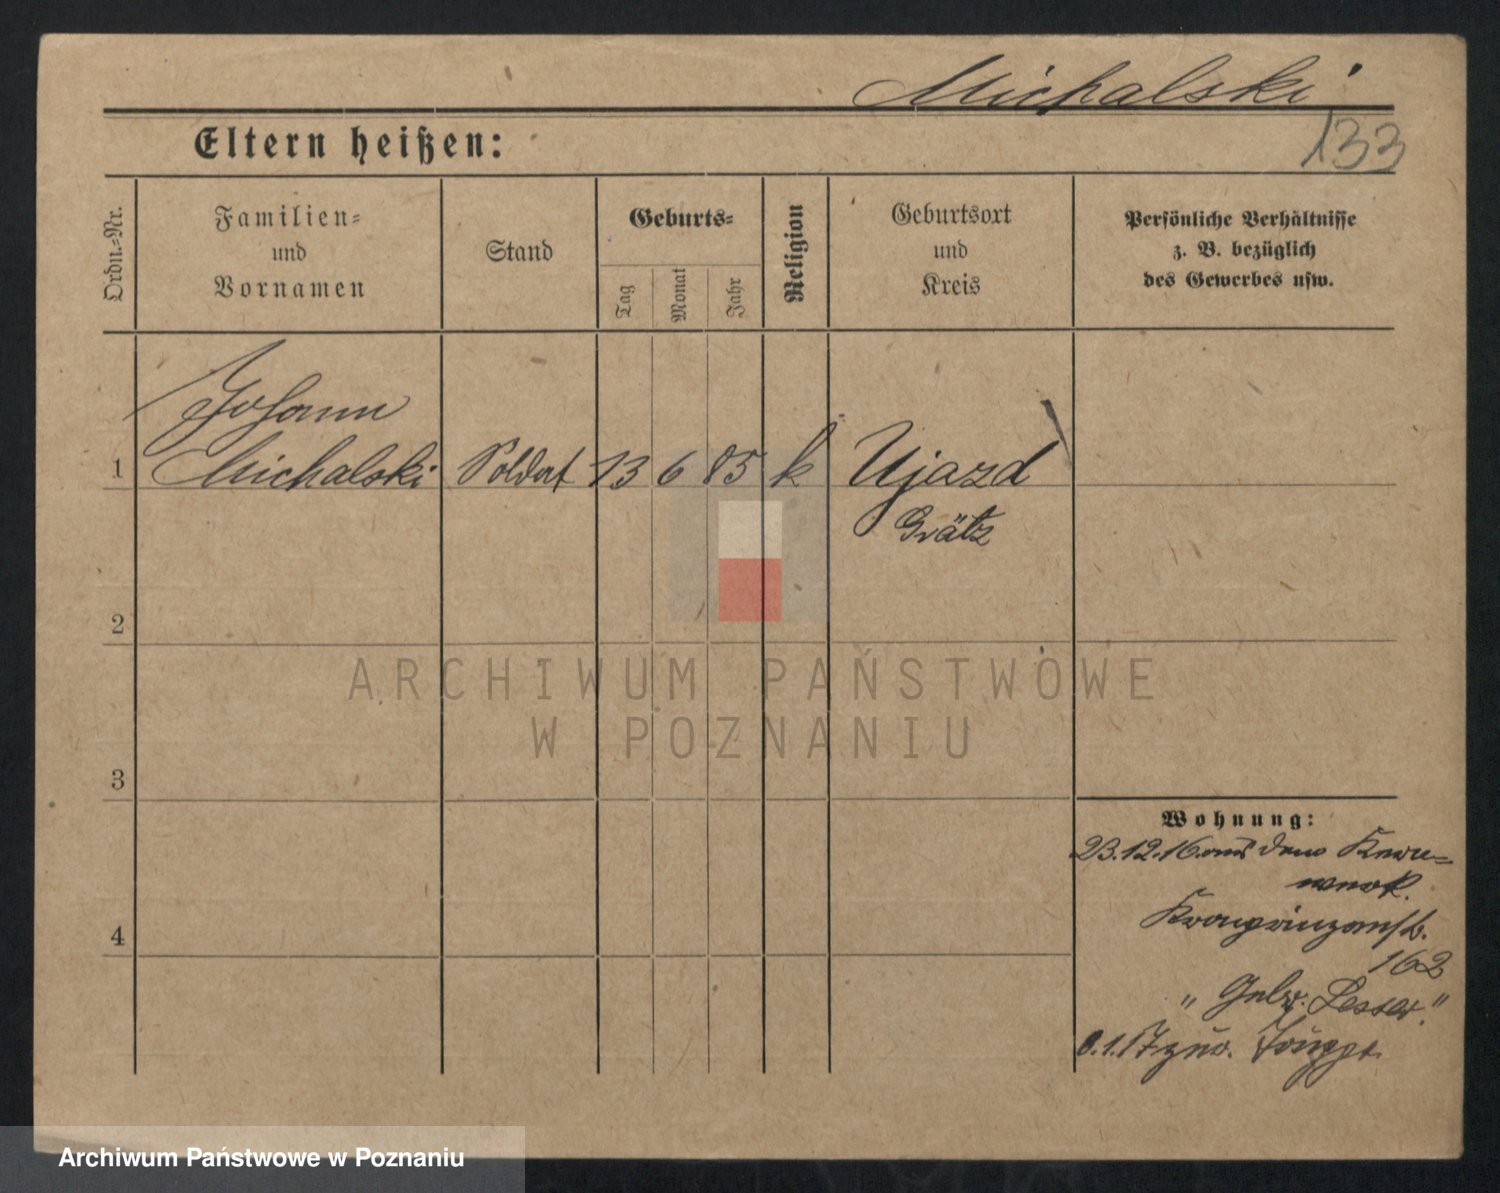 Michalski
133
Eltern heißen:
Ordn.-Nr.
Familien-
und
Vornamen
Stand
Geburts-
Tag
Monat
Jahr
Religion
Geburtsort
und
Kreis
Persönliche Verhältnisse
z. B. bezüglich
des Gewerbes usw.
Johann
1 Michalski Soldat 13 6 85 k Ujazd
Grätz
2
ARCHIWUM PAŃSTWOWE
W POZNANIU
3
Wohnung:
23.12.16. aus dem
4
Kronprinzenstr.
162
„Gebr. Lesser."
8.1.17 zur. Truppe
Archiwum Państwowe w Poznaniu